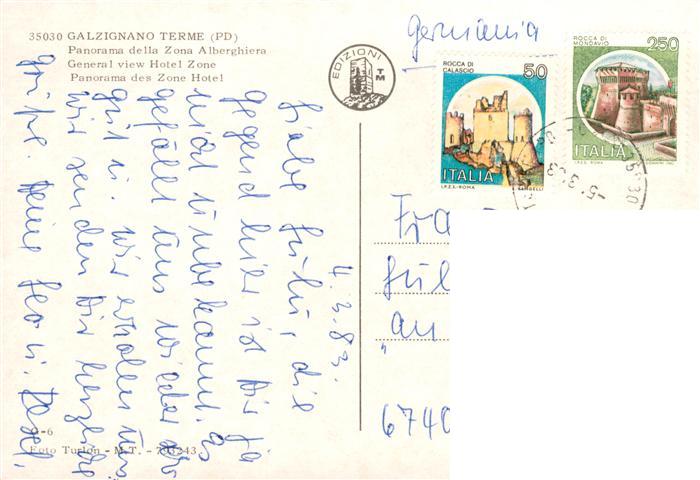 35030 GALZIGNANO TERME (PD)
Panorama della Zona Alberghiera
General view Hotel Zone
Panorama des Zone Hotel
EDIZIONI
TM
Germania
ROCCA DI
CALASCIO
50
ITALIA
I.P.Z.S.-ROMA
ROCCA DI
MONDAVIO
250
ITALIA
I.P.Z.S. ROMA
-5.3.83
4.3.83.
Liebe die
Gegend hier ist Dir ja
nicht unbekannt. Es
gefällt uns wieder
gut u. wir erholen uns
Wir senden Dir herzliche
Grüße. Deine
Fra
an
"
6740
-6
Foto Turlon - M.T. -